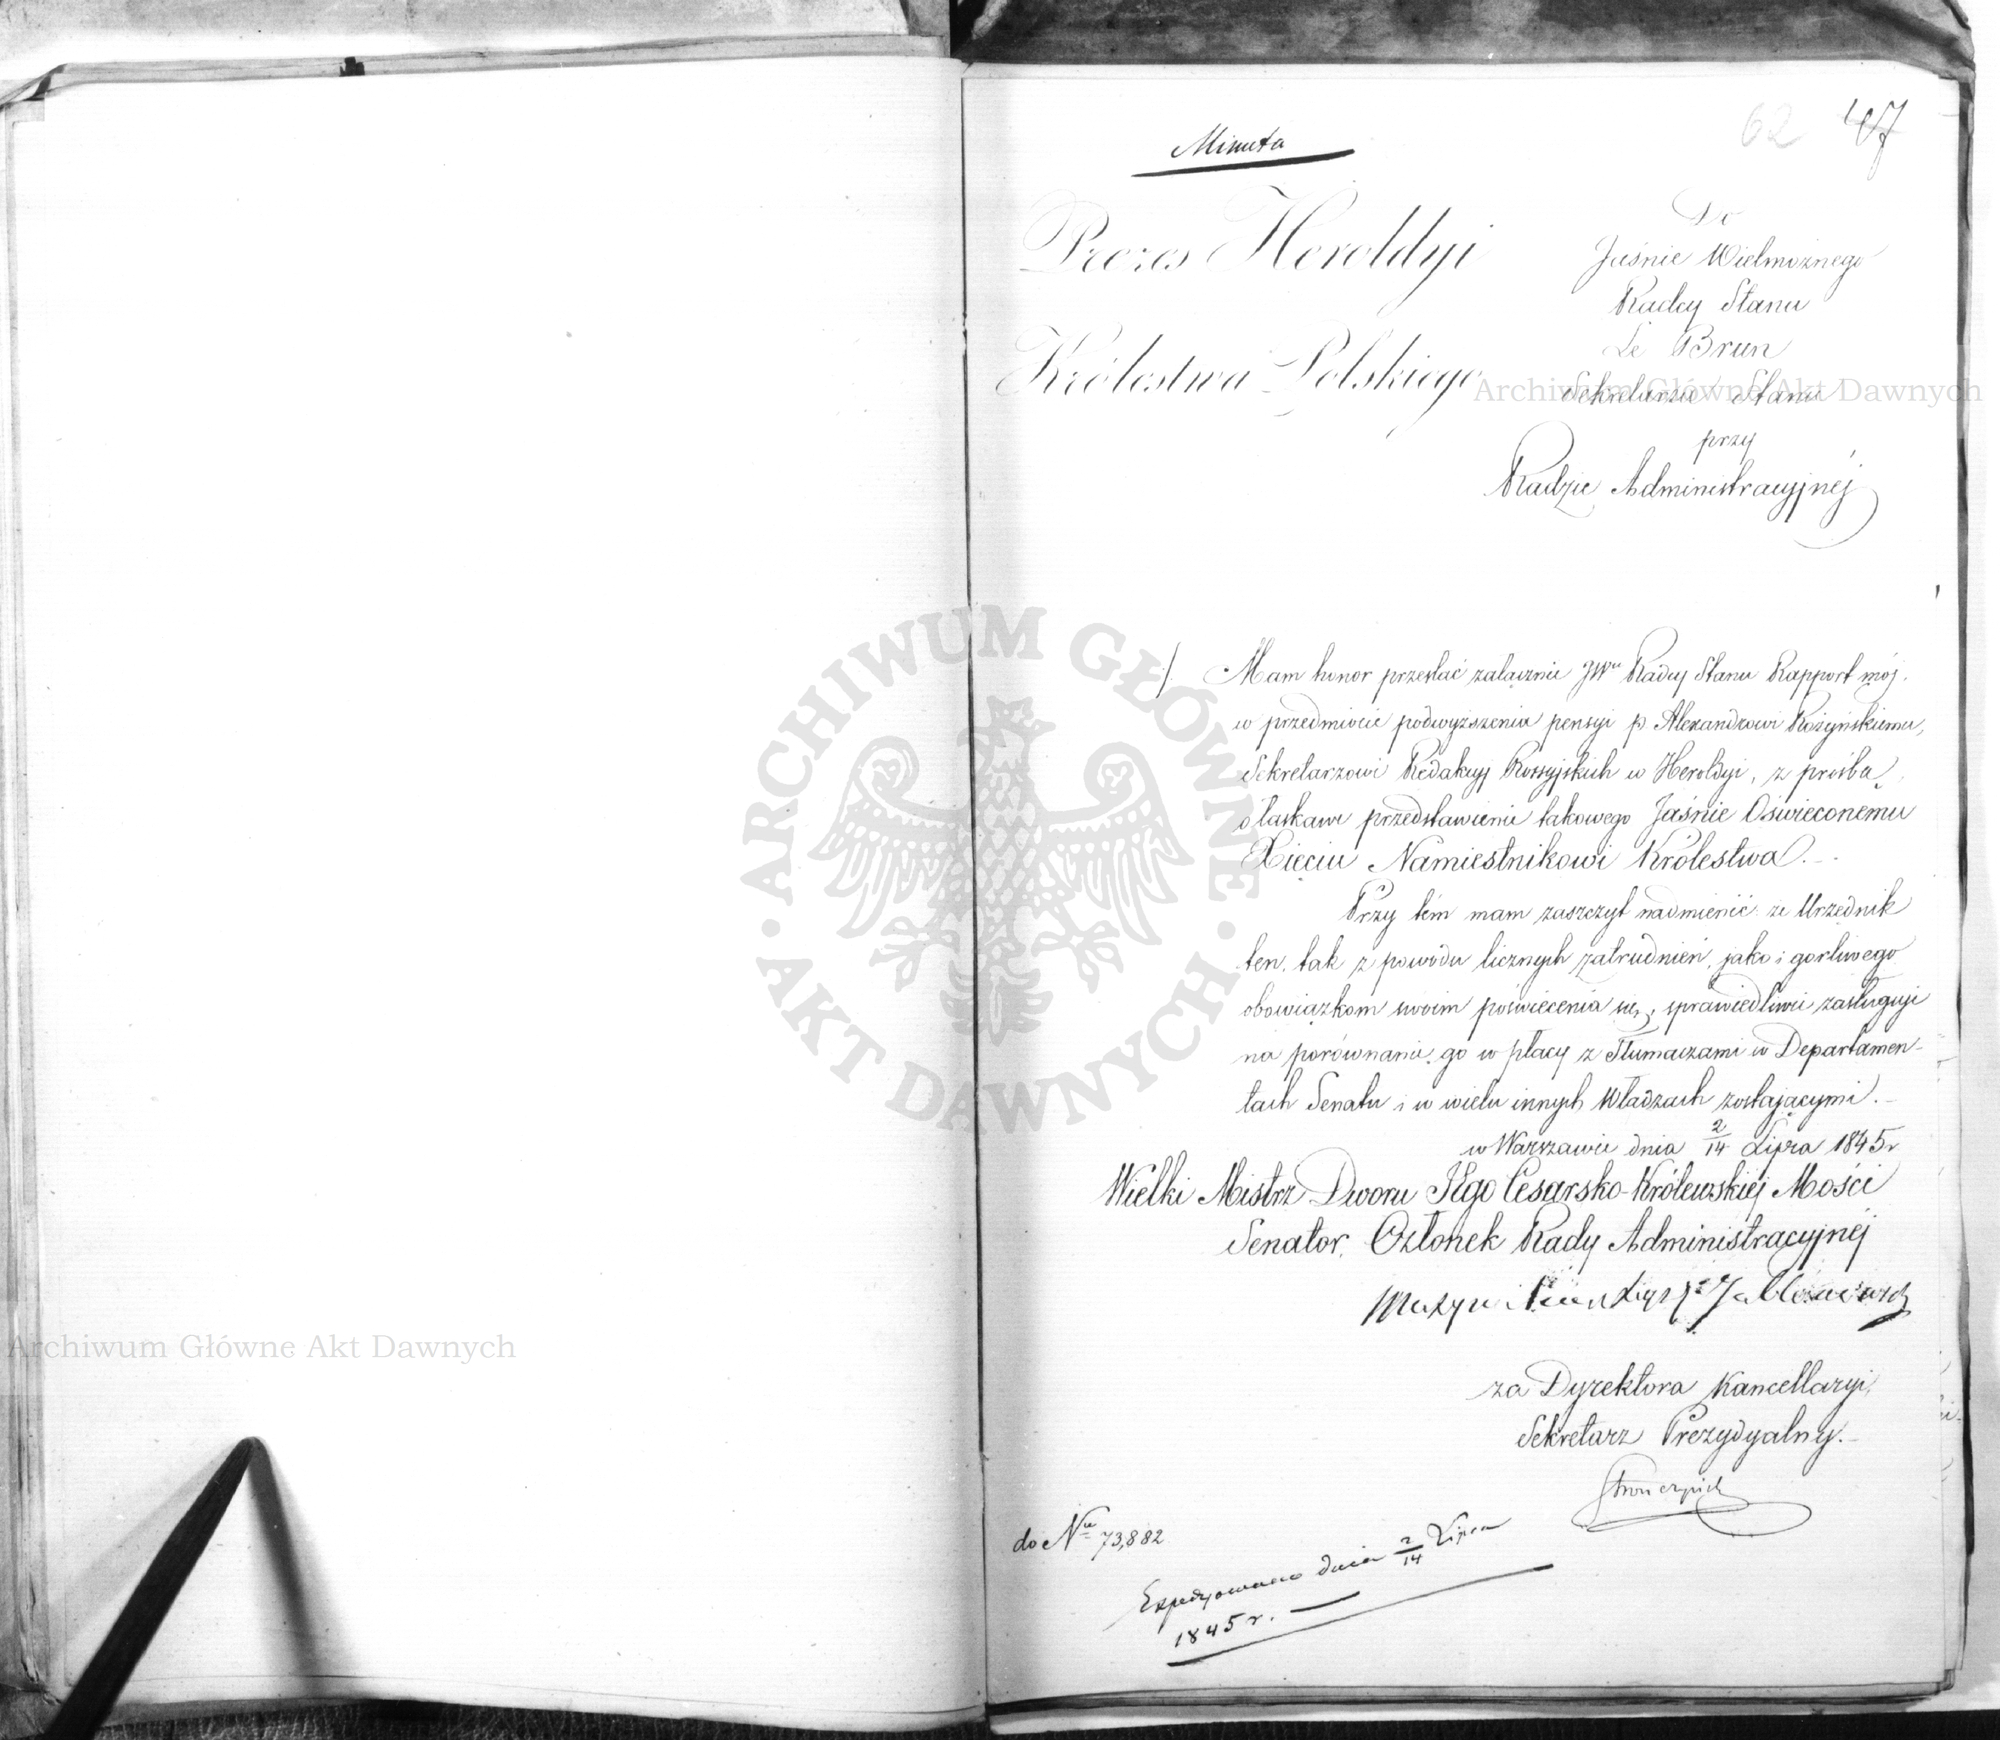 62 47
Minuta
Prezes Heroldyi
Królestwa Polskiego
Do
Jaśnie Wielmożnego
Radcy Stanu
Le Brun
Sekretarza Stanu
przy
Radzie Administracyjnéj
./. Mam honor przesłać załącznie JWu Radcy Stanu Rapport mój
w przedmiocie podwyższenia pensyi p. Alexandrowi Rożyńskiemu,
Sekretarzowi Redakcyj Rossyjskich w Heroldyi, z prośbą
o łaskawe przedstawienie takowego Jaśnie Oświeconemu
Xięciu Namiestnikowi Królestwa.
Przy tém mam zaszczyt nadmienić że Urzędnik
ten, tak z powodu licznych zatrudnień, jako i gorliwego
obowiązkom swoim poświecenia się, sprawiedliwie zasługuje
na porównanie go w płacy z Tłumaczami w Departamen-
tach Senatu i w wielu innych Władzach zostającymi.
w Warszawie dnia 2/14 Lipca 1845 r
Wielki Mistrz Dworu Jego Cesarsko-Królewskiéj Mości
Senator, Członek Rady Administracyjnéj
za Dyrektora Kancellaryi,
Sekretarz Prezydyalny.
Stronczyński
do Nru 73,882
Expedyowano dnia 2/14 Lipca
1845 r.
Archiwum Główne Akt Dawnych
Archiwum Główne Akt Dawnych
ARCHIWUM GŁÓWNE · AKT DAWNYCH ·